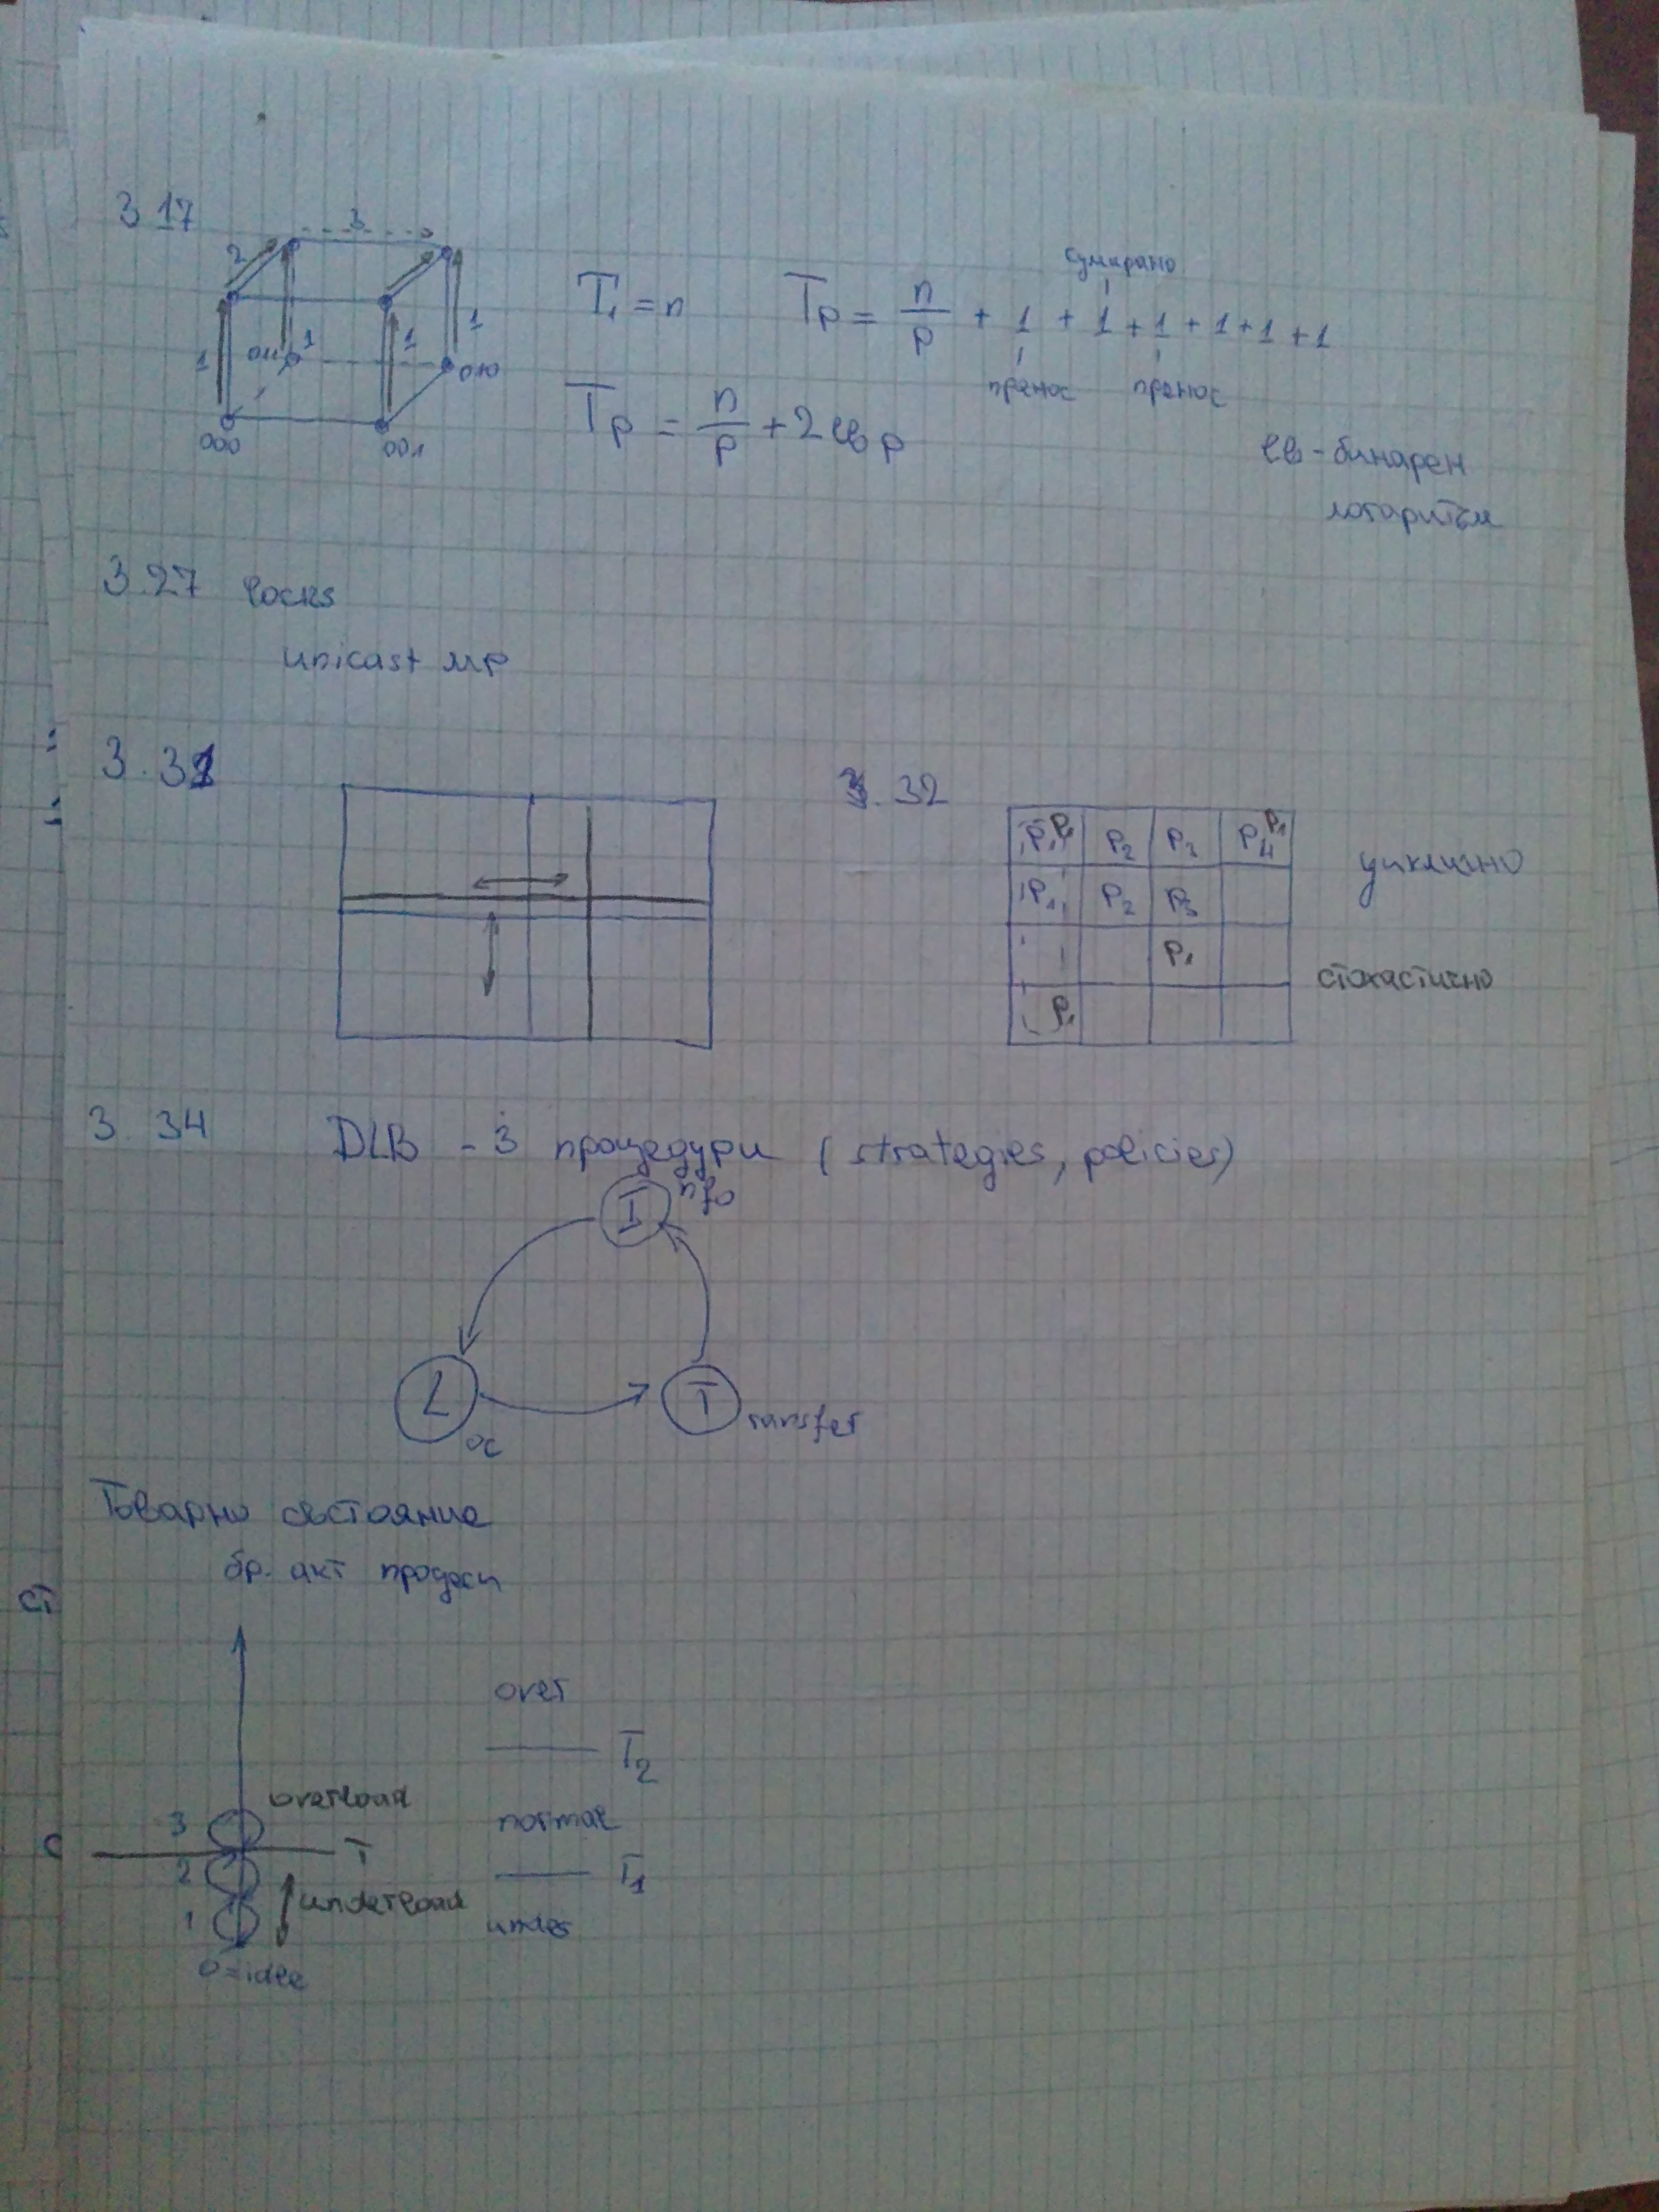 3.17
3
2
1
1
1
1
011
010
000
001
T₁ = n
сумирано
Tp = n/p + 1 + 1 + 1 + 1 + 1 + 1
пренос пренос
Tp = n/p + 2 lb p
lb - бинарен
логаритъм
3.27 locks
unicast MP
3.31
3.32
P₁ P₁ P₂ P₃ P₄ P₁
циклично
P₁ P₂ P₃
P₁
стохастично
P₁
3.34 DLB - 3 процедури (strategies, policies)
I nfo
L oc
T ransfer
Товарно състояние
бр. акт процеси
over
T₂
overload
3
normal
T
2
T₁
underload
1
under
0 = idle
ст
с